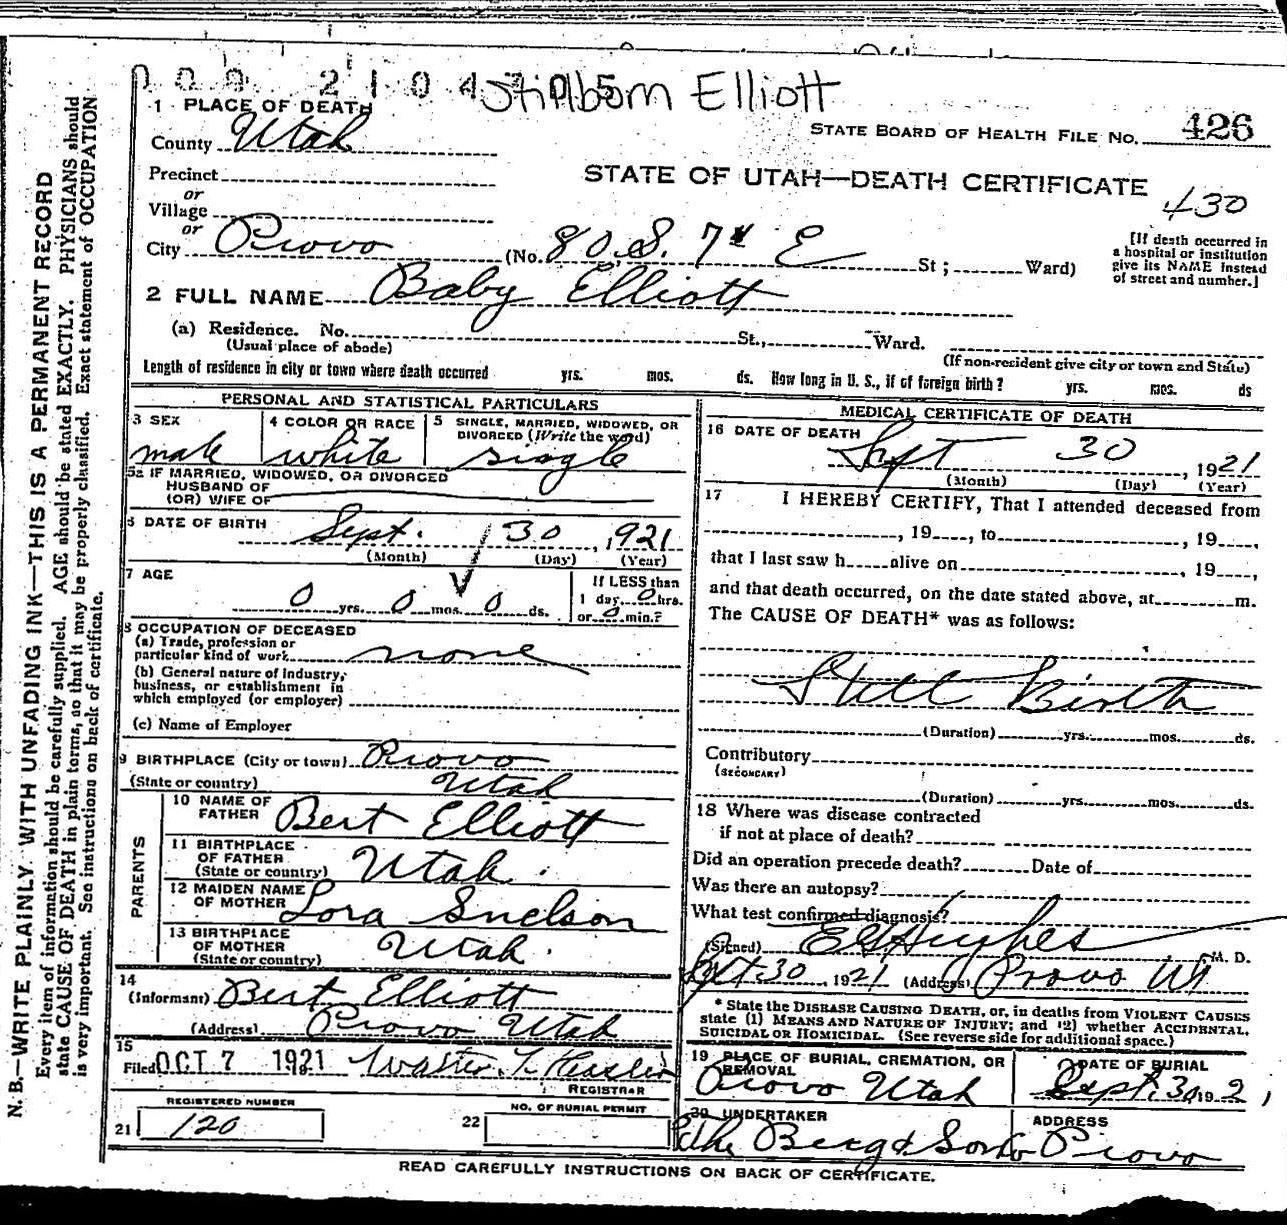 009 2104705
Stillborn Elliott
1 PLACE OF DEATH
STATE BOARD OF HEALTH FILE NO. 426
County Utah
STATE OF UTAH—DEATH CERTIFICATE
430
Precinct
or
Village
or
City Provo (No. 80 S. 7th E St ; Ward)
[If death occurred in
a hospital or institution
give its NAME instead
of street and number.]
2 FULL NAME Baby Elliott
(a) Residence. No. St., Ward.
(Usual place of abode) (If non-resident give city or town and State)
Length of residence in city or town where death occurred yrs. mos. ds. How long in U. S., if of foreign birth? yrs. mos. ds
PERSONAL AND STATISTICAL PARTICULARS
3 SEX
male
4 COLOR OR RACE
white
5 SINGLE, MARRIED, WIDOWED, OR
DIVORCED (Write the word)
single
5a IF MARRIED, WIDOWED, OR DIVORCED
HUSBAND OF
(OR) WIFE OF
6 DATE OF BIRTH Sept. 30, 1921
(Month) (Day) (Year)
7 AGE
0 yrs. 0 mos. 0 ds.
If LESS than
1 day 0 hrs.
or 0 min.?
8 OCCUPATION OF DECEASED
(a) Trade, profession or
particular kind of work none
(b) General nature of Industry,
business, or establishment in
which employed (or employer)
(c) Name of Employer
9 BIRTHPLACE (City or town) Provo
(State or country) Utah
PARENTS
10 NAME OF
FATHER Bert Elliott
11 BIRTHPLACE
OF FATHER
(State or country) Utah.
12 MAIDEN NAME
OF MOTHER Lora Snelson
13 BIRTHPLACE
OF MOTHER
(State or country) Utah.
14
(Informant) Bert Elliott
(Address) Provo Utah
15
Filed OCT 7 1921 Walter T. Hasler
REGISTRAR
REGISTERED NUMBER
21 120
NO. OF BURIAL PERMIT
22
MEDICAL CERTIFICATE OF DEATH
16 DATE OF DEATH
Sept 30, 1921
(Month) (Day) (Year)
17 I HEREBY CERTIFY, That I attended deceased from
, 19 , to , 19 ,
that I last saw h alive on , 19 ,
and that death occurred, on the date stated above, at m.
The CAUSE OF DEATH* was as follows:
Still Birth
(Duration) yrs. mos. ds.
Contributory
(SECONDARY)
(Duration) yrs. mos. ds.
18 Where was disease contracted
if not at place of death?
Did an operation precede death? Date of
Was there an autopsy?
What test confirmed diagnosis?
(Signed) E G Hughes M. D.
Sept. 30, 1921 (Address) Provo Ut
* State the DISEASE CAUSING DEATH, or, in deaths from VIOLENT CAUSES
state (1) MEANS AND NATURE OF INJURY; and (2) whether ACCIDENTAL,
SUICIDAL OR HOMICIDAL. (See reverse side for additional space.)
19 PLACE OF BURIAL, CREMATION, OR
REMOVAL
Provo Utah
DATE OF BURIAL
Sept. 30 192 1
20 UNDERTAKER
The Berg & Sons Co
ADDRESS
Provo
READ CAREFULLY INSTRUCTIONS ON BACK OF CERTIFICATE.
N. B.—WRITE PLAINLY, WITH UNFADING INK—THIS IS A PERMANENT RECORD
Every item of information should be carefully supplied. AGE should be stated EXACTLY. PHYSICIANS should
state CAUSE OF DEATH in plain terms, so that it may be properly classified. Exact statement of OCCUPATION
is very important. See instructions on back of certificate.